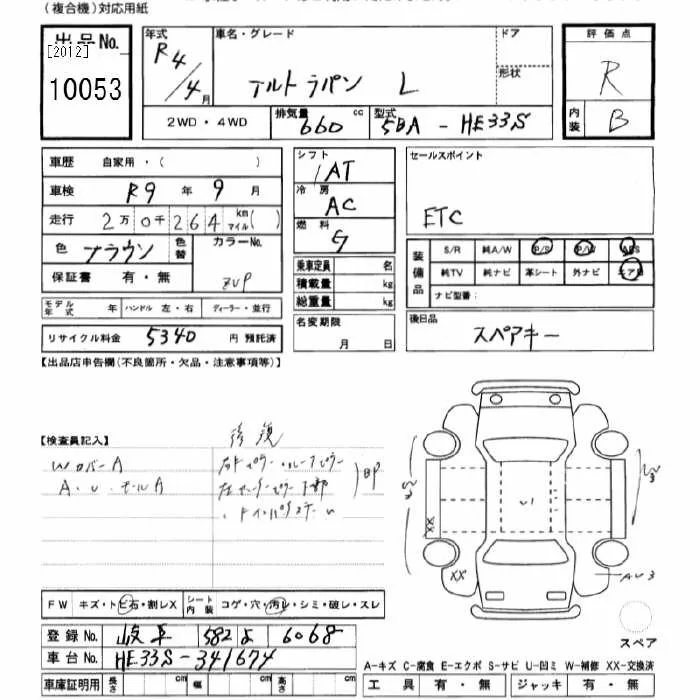 (複合機)対応用紙
出品No.
[2012]
10053
年式
R4/4月
車名・グレード
アルトラパン L
ドア
形状
評価点
R
内装
B
2WD・4WD
排気量
660 cc
型式
5BA - HE33S
車歴 自家用・( )
車検 R9 年 9 月
走行 2万0千264 km マイル( )
色 ブラウン 色替 カラーNo. ZVP
保証書 有・無
モデル年式 年 ハンドル 左・右 ディーラー・並行
リサイクル料金 5340 円 預託済
シフト AT
冷房 AC
燃料 G
乗車定員 名
積載量 kg
総重量 kg
名変期限
月 日
セールスポイント
ETC
装備品
S/R 純A/W P/S P/W ABS
純TV 純ナビ 革シート 外ナビ エアB
ナビ型番:
後日品
スペアキー
【出品店申告欄(不良箇所・欠品・注意事項等)】
【検査員記入】
修復
WカバーA
A.U.モールA
BP
FW キズ・トビ石・割レX シート内装 コゲ・穴・汚レ・シミ・破レ・スレ
登録No. 岐阜 582 よ 6068
車台No. HE33S-341674
車庫証明用 長さ 幅 高さ
XX
XX
U1
AU3
スペア
A-キズ C-腐食 E-エクボ S-サビ U-凹ミ W-補修 XX-交換済
工具 有・無 ジャッキ 有・無